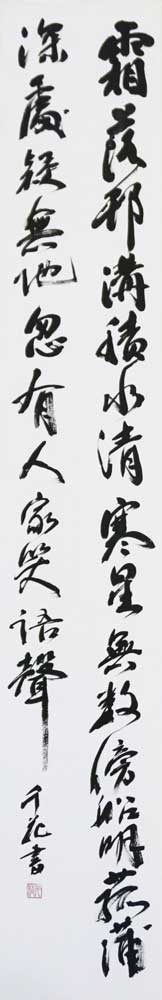 霜落邗溝積水清寒星無数傍船明菰蒲
深處疑無地忽有人家笑語聲
千花書